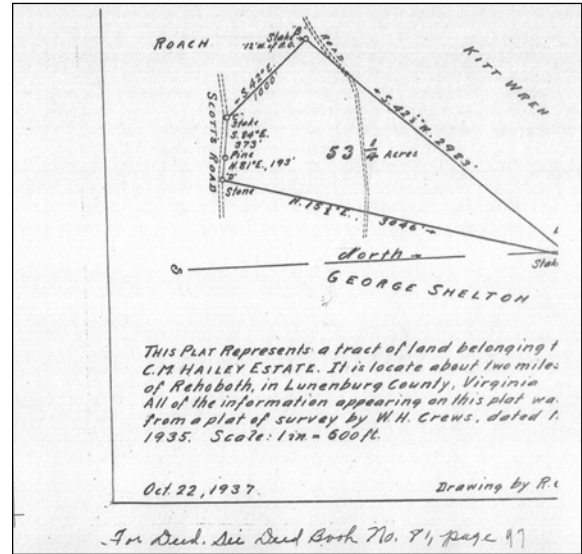 ROACH.
Stake B
12" W. of R.O.
ROAD
KITT WREN
S. 62° E.
1060'
S. 42½° W. 2983
"C"
Stake
S. 84° E.
373'
Pine
N. 81° E., 193'
"D"
Stone
SCOTTS ROAD
53 ¼ Acres
N. 15¾° E. 3046'
North
S
Stak
GEORGE SHELTON
THIS PLAT Represents a tract of land belonging t
C.M. HAILEY ESTATE. It is locate about two miles
of Rehoboth, in Lunenburg County, Virginia
All of the information appearing on this plat wa
from a plat of survey by W.H. Crews, dated
1935. Scale: 1 in = 600 ft.
Oct. 22, 1937.
Drawing by R.
For Deed. See Deed Book No. 81, page 97